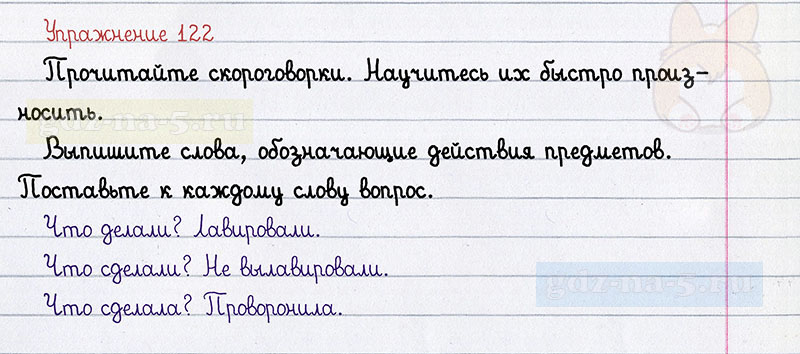 Упражнение 122
Прочитайте скороговорки. Научитесь их быстро произ-
носить.
gdz-na-5.ru
Выпишите слова, обозначающие действия предметов.
Поставьте к каждому слову вопрос.
Что делали? Лавировали.
Что сделали? Не вылавировали.
gdz-na-5.ru
Что сделала? Проворонила.